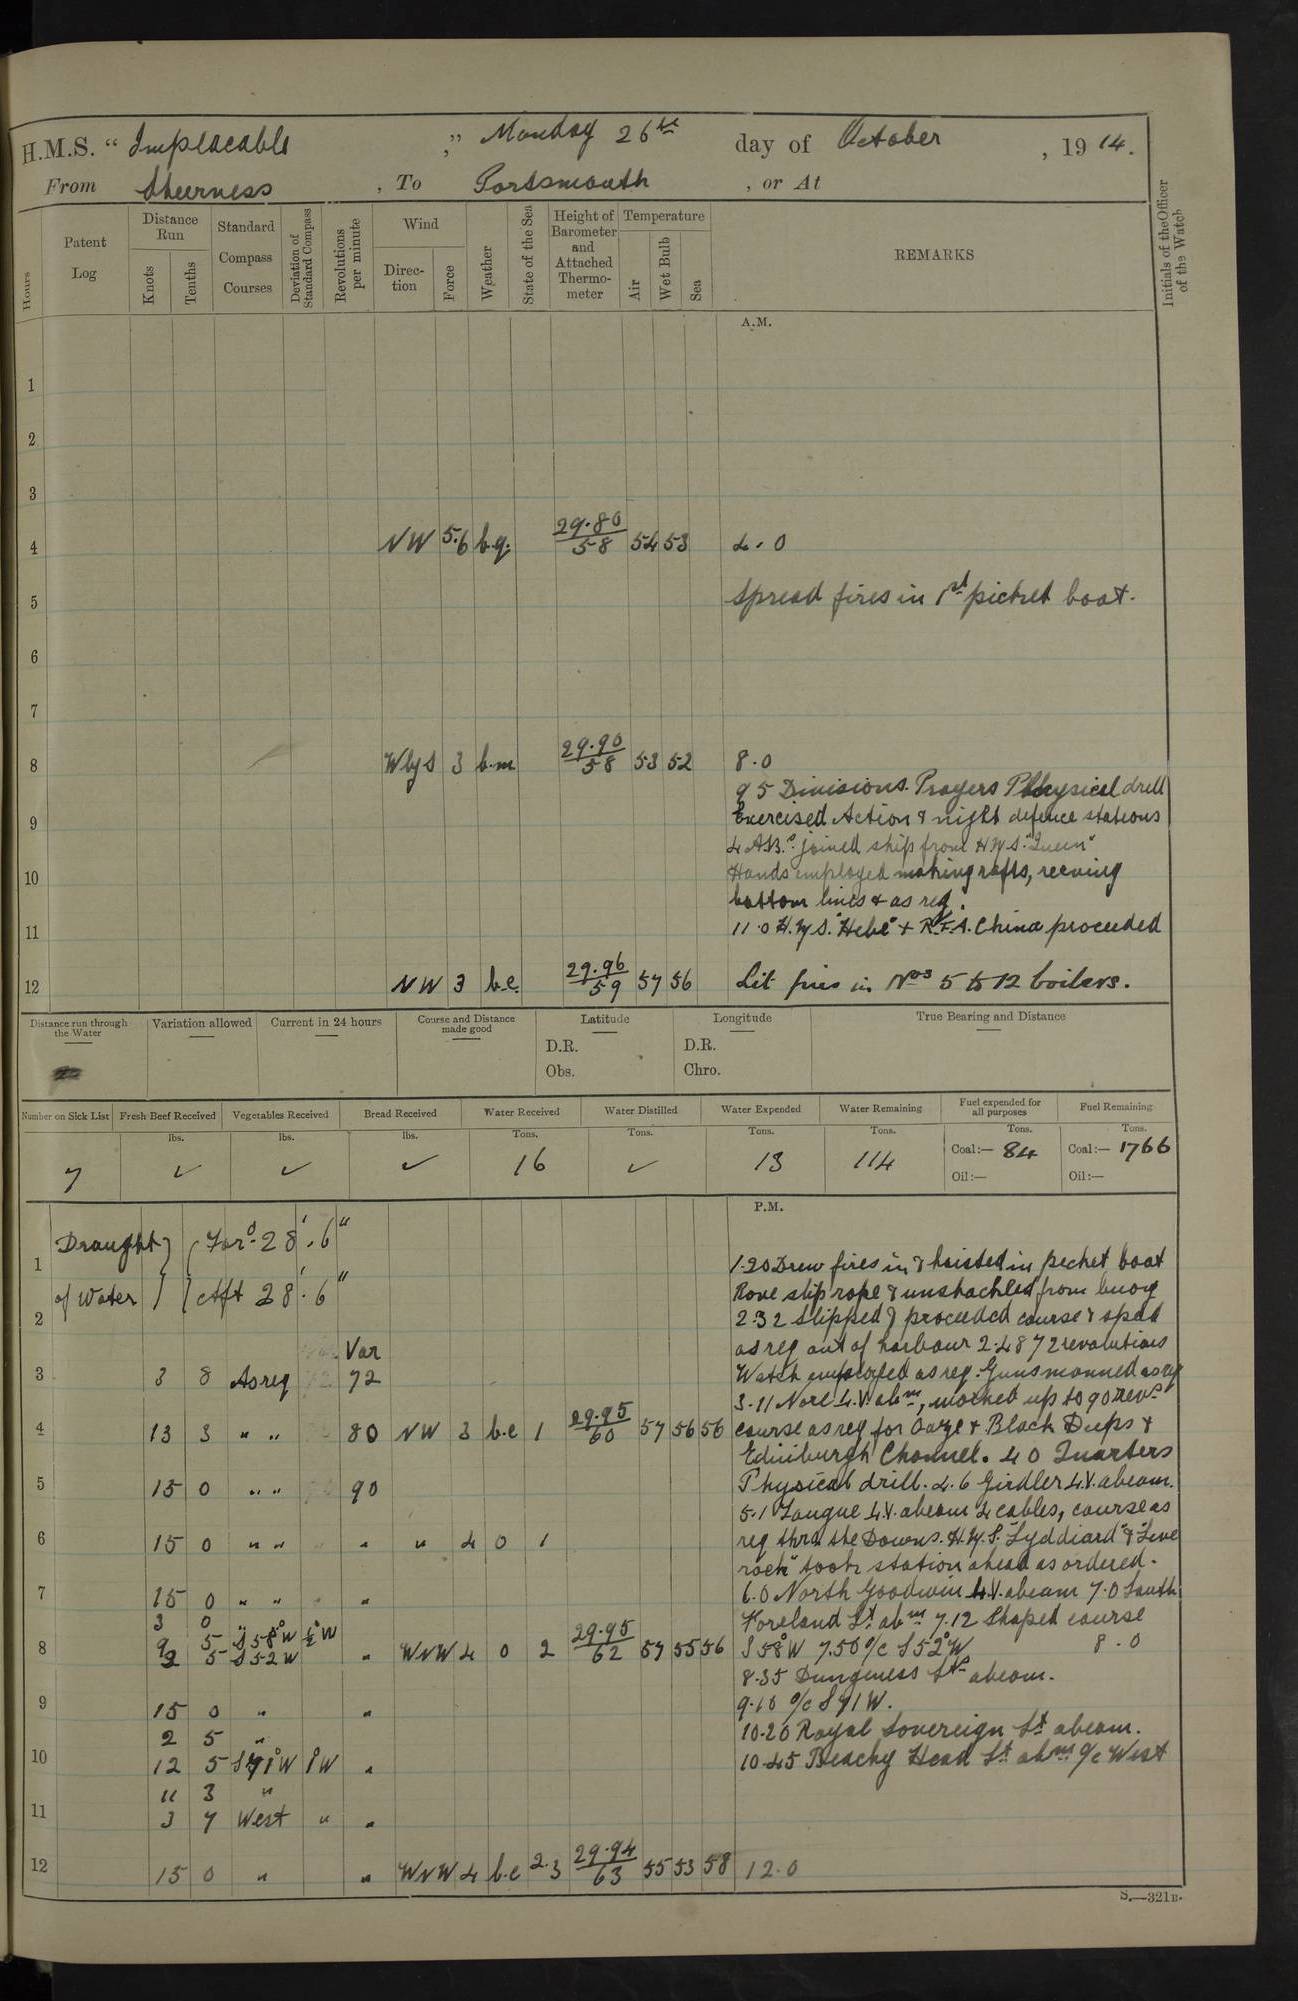 H.M.S. “ Implacable ,” Monday 26th day of October , 1914.
From Sheerness , To Portsmouth , or At
Hours
Patent Log
Distance Run
Knots
Tenths
Standard Compass Courses
Deviation of Standard Compass
Revolutions per minute
Wind
Direction
Force
Weather
State of the Sea
Height of Barometer and Attached Thermometer
Temperature
Air
Wet Bulb
Sea
REMARKS
Initials of the Officer of the Watch
A.M.
1
2
3
4 NW 5.6 b.q. 29.80/58 54 53 4.0
5 Spread fires in 1st picket boat.
6
7
8 W by S 3 b.m 29.90/58 53 52 8.0
9 5 Divisions. Prayers Physical drill
9 Exercised Action & night defence stations
4 A.B.s joined ship from H.M.S. "Queen"
10 Hands employed making rafts, reeving
bottom lines & as req.
11 11.0 H.M.S. "Hebe" + R.F.A. China proceeded
12 NW 3 b.c. 29.96/59 57 56 Lit fires in Nos 5 to 12 boilers.
Distance run through the Water
Variation allowed
Current in 24 hours
Course and Distance made good
Latitude
D.R.
Obs.
Longitude
D.R.
Chro.
True Bearing and Distance
Number on Sick List Fresh Beef Received Vegetables Received Bread Received Water Received Water Distilled Water Expended Water Remaining Fuel expended for all purposes Fuel Remaining
lbs. lbs. lbs. Tons. Tons. Tons. Tons. Tons. Tons.
7 ✓ ✓ ✓ 16 ✓ 13 114 Coal:— 84 Coal:— 1766
Oil:— Oil:—
P.M.
Draught } { For'd 28'.6"
1 1.20 Drew fires in & hoisted in picket boat
of Water } { Aft 28'.6" Rove slip rope & unshackled from buoy
2 2.32 Slipped & proceeded course & speed
Var as req out of harbour 2.48 72 revolutions
3 3 8 As req 72 Watch employed as req. Guns manned as req
3.11 Nore L.V. abm, worked up to 90 revs
4 13 3 " " 80 NW 3 b.c 1 29.95/60 57 56 56 course as req for Oaze & Black Deeps &
Edinburgh Channel. 4.0 Quarters
5 15 0 " " 90 Physical drill. 4.6 Girdler L.V. abeam.
5.1 Tongue L.V. abeam 4 cables, course as
6 15 0 " " " " 4 0 1 req thro the Downs. H.M.S. "Lyddiard" & "Lave
rock" took station ahead as ordered.
7 15 0 " " " 6.0 North Goodwin L.V. abeam 7.0 South
3 0 " Foreland Lt abm 7.12 Shaped course
8 9 5 S 58° W ½° W
2 5 S 52 W " WNW 4 0 2 29.95/62 57 55 56 S 58° W 7.50 a/c S 52° W 8.0
8.35 Dungeness Lts abeam.
9 15 0 " " 9.10 a/c S 71 W.
2 5 " 10.20 Royal Sovereign Lt abeam.
10 12 5 S 71° W 1° W " 10.45 Beachy Head Lt abm a/c West
11 3 "
11 3 7 West " "
12 15 0 " " WNW 4 b.c 2.3 29.94/63 55 53 58 12.0
S.—321B.